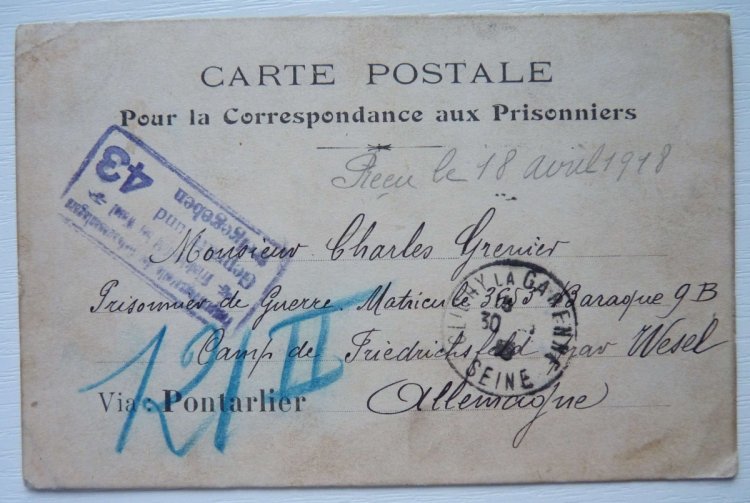 CARTE POSTALE
Pour la Correspondance aux Prisonniers
Reçu le 18 avril 1918
43
und
Monsieur Charles Grenier
Prisonnier de Guerre. Matricule 3655 Baraque 9B
Camp de Friedrichsfeld par Wesel
Allemagne
Via : Pontarlier
121 II
CLICHY LA GARENNE
30
SEINE